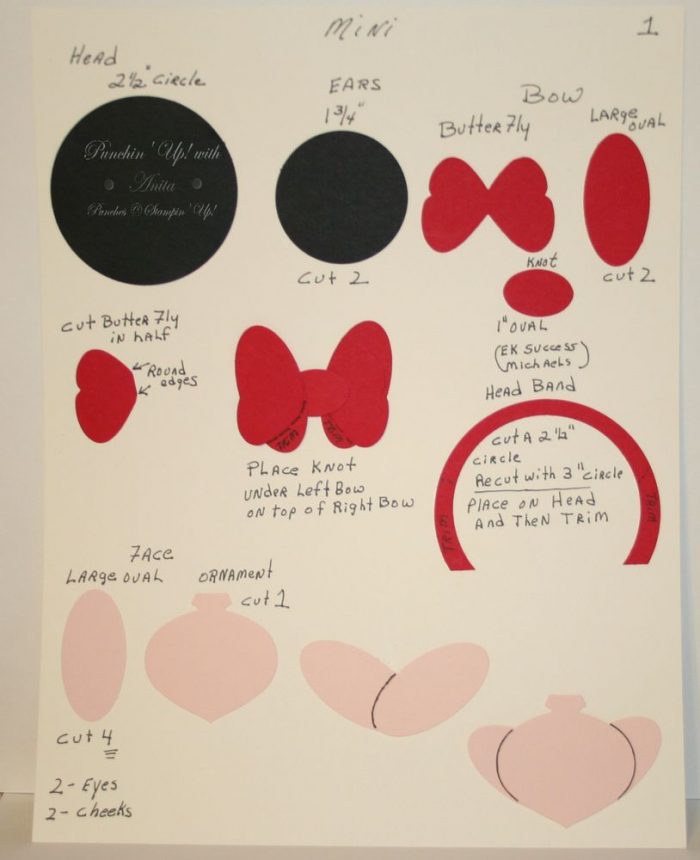 Mini
1
Head
2½" Circle
Punchin' Up! with
Anita
Punches @ Stampin' Up!
EARS
1 3/4"
Cut 2
Bow
Butterfly
LARGE
OVAL
Cut 2
Knot
1" OVAL
(EK Success
Michaels)
Cut Butterfly
in half
Round
edges
TRIM
TRIM
PLACE KNOT
UNDER Left Bow
on top of Right Bow
Head Band
Cut A 2½"
circle
Recut with 3" circle
PLACE on Head
And Then TRIM
TRIM
TRIM
FACE
LARGE OVAL
Cut 4
2 - Eyes
2 - Cheeks
ORNAMENT
Cut 1